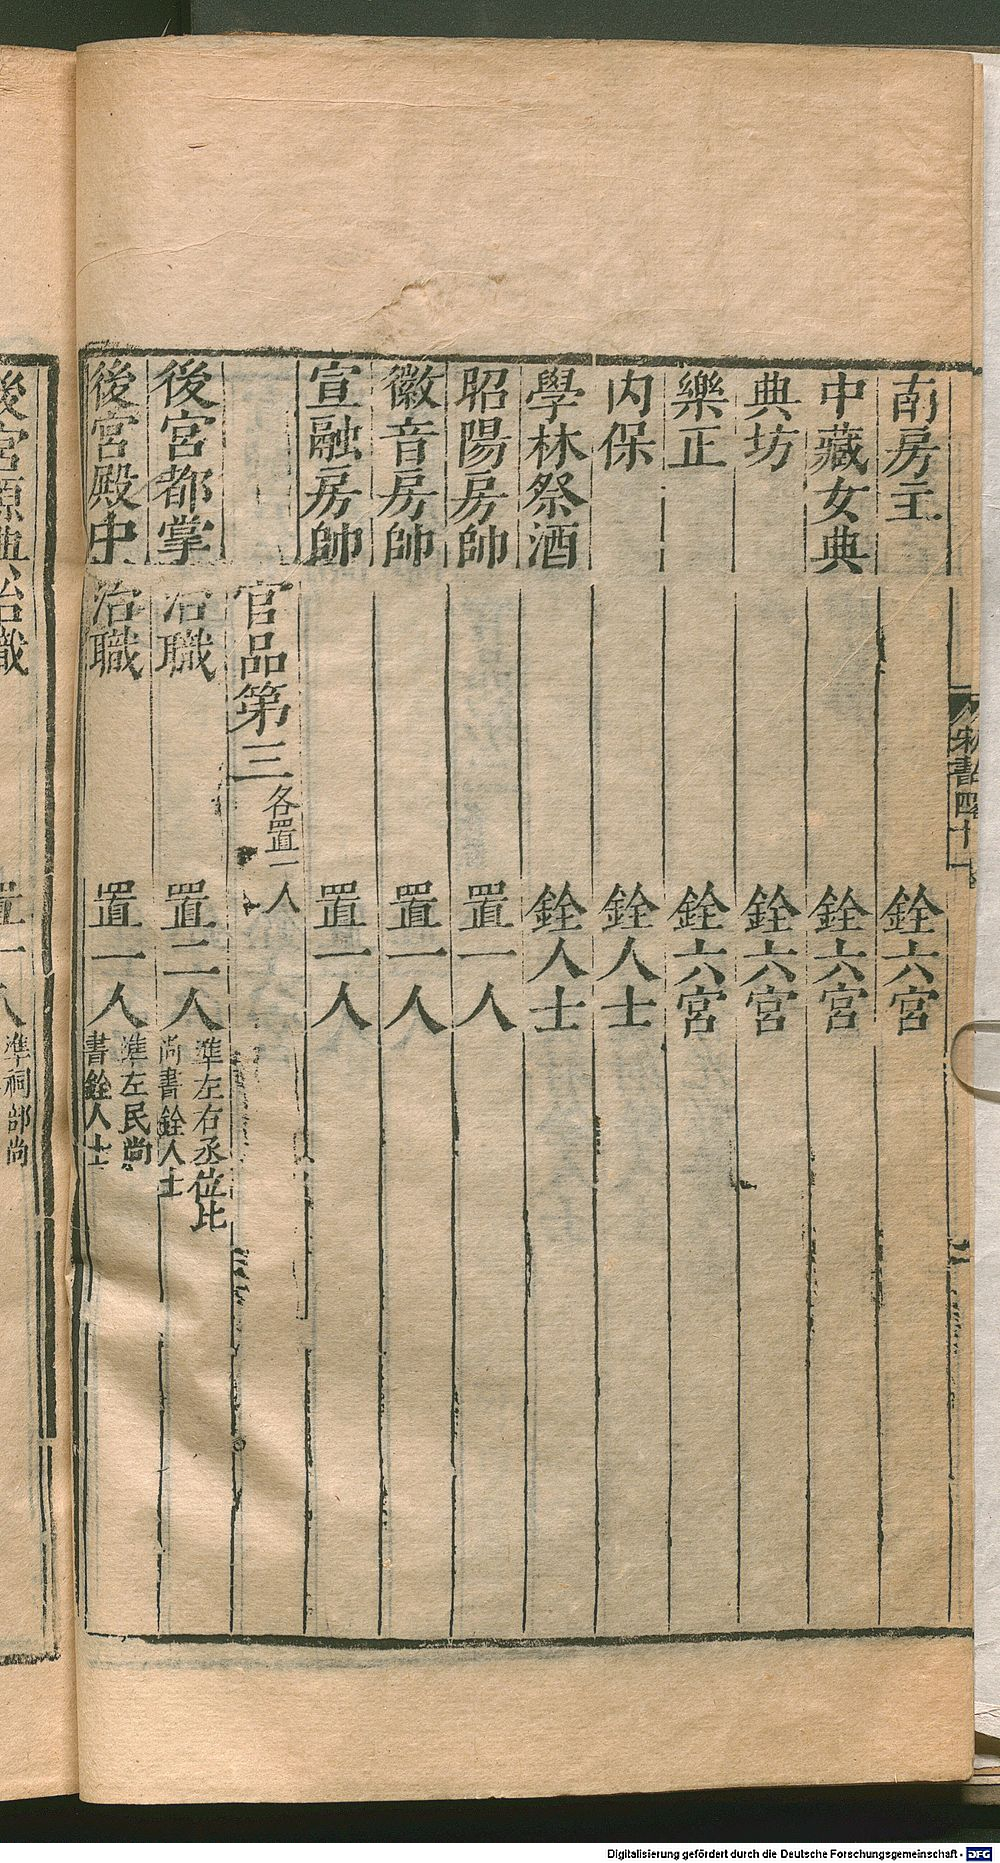 宋書四十一
南房主　銓六宮
中藏女典　銓六宮
典坊　銓六宮
樂正　銓六宮
内保　銓人士
學林祭酒　銓人士
昭陽房帥　置一人
徽音房帥　置一人
宣融房帥　置一人
官品第三各置一人
後宮都掌治職　置二人準左右丞位比尚書銓人士
後宮殿中治職　置一人準左民尚書銓人士
後宮源典治職　置一人準祠部尚
Digitalisierung gefördert durch die Deutsche Forschungsgemeinschaft - DFG